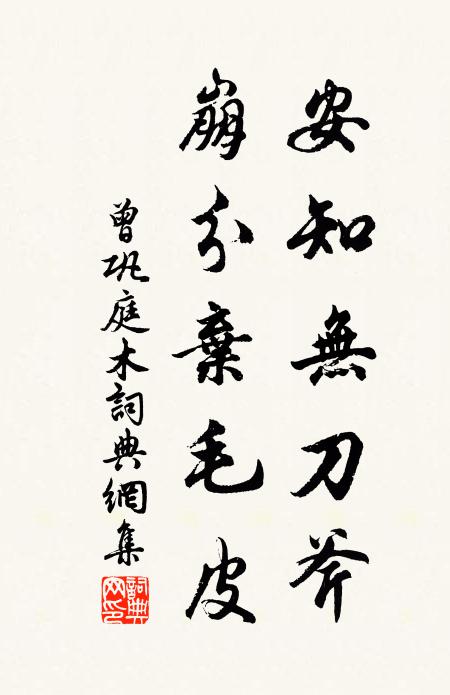 安知無刀斧
崩分棄毛皮
曾巩庭木詞典網集
詞典网印